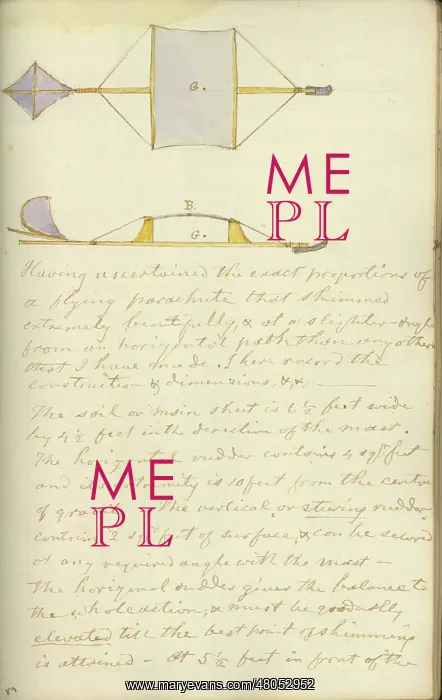 G.
B.
G.
Having ascertained the exact proportions of
a flying parachute that skimmed
extremely beautifully, & at a slighter angle
from an horizontal path than any other
that I have made. I here record the
construction & dimensions, &c. —
The sail or main sheet is 6½ feet wide
by 4½ feet in the direction of the mast.
The horizontal rudder contains 4 sqr feet
and its extremity is 10 feet from the centre
of gravity The vertical or steering rudder
contains 2 sqr feet of surface, & can be secured
at any required angle with the mast —
The horizontal rudder gives the balance to
the whole action, & must be gradually
elevated till the best point of skimming
is attained — At 5½ feet in front of the
ME
PL
ME
PL
www.maryevans.com/48052952